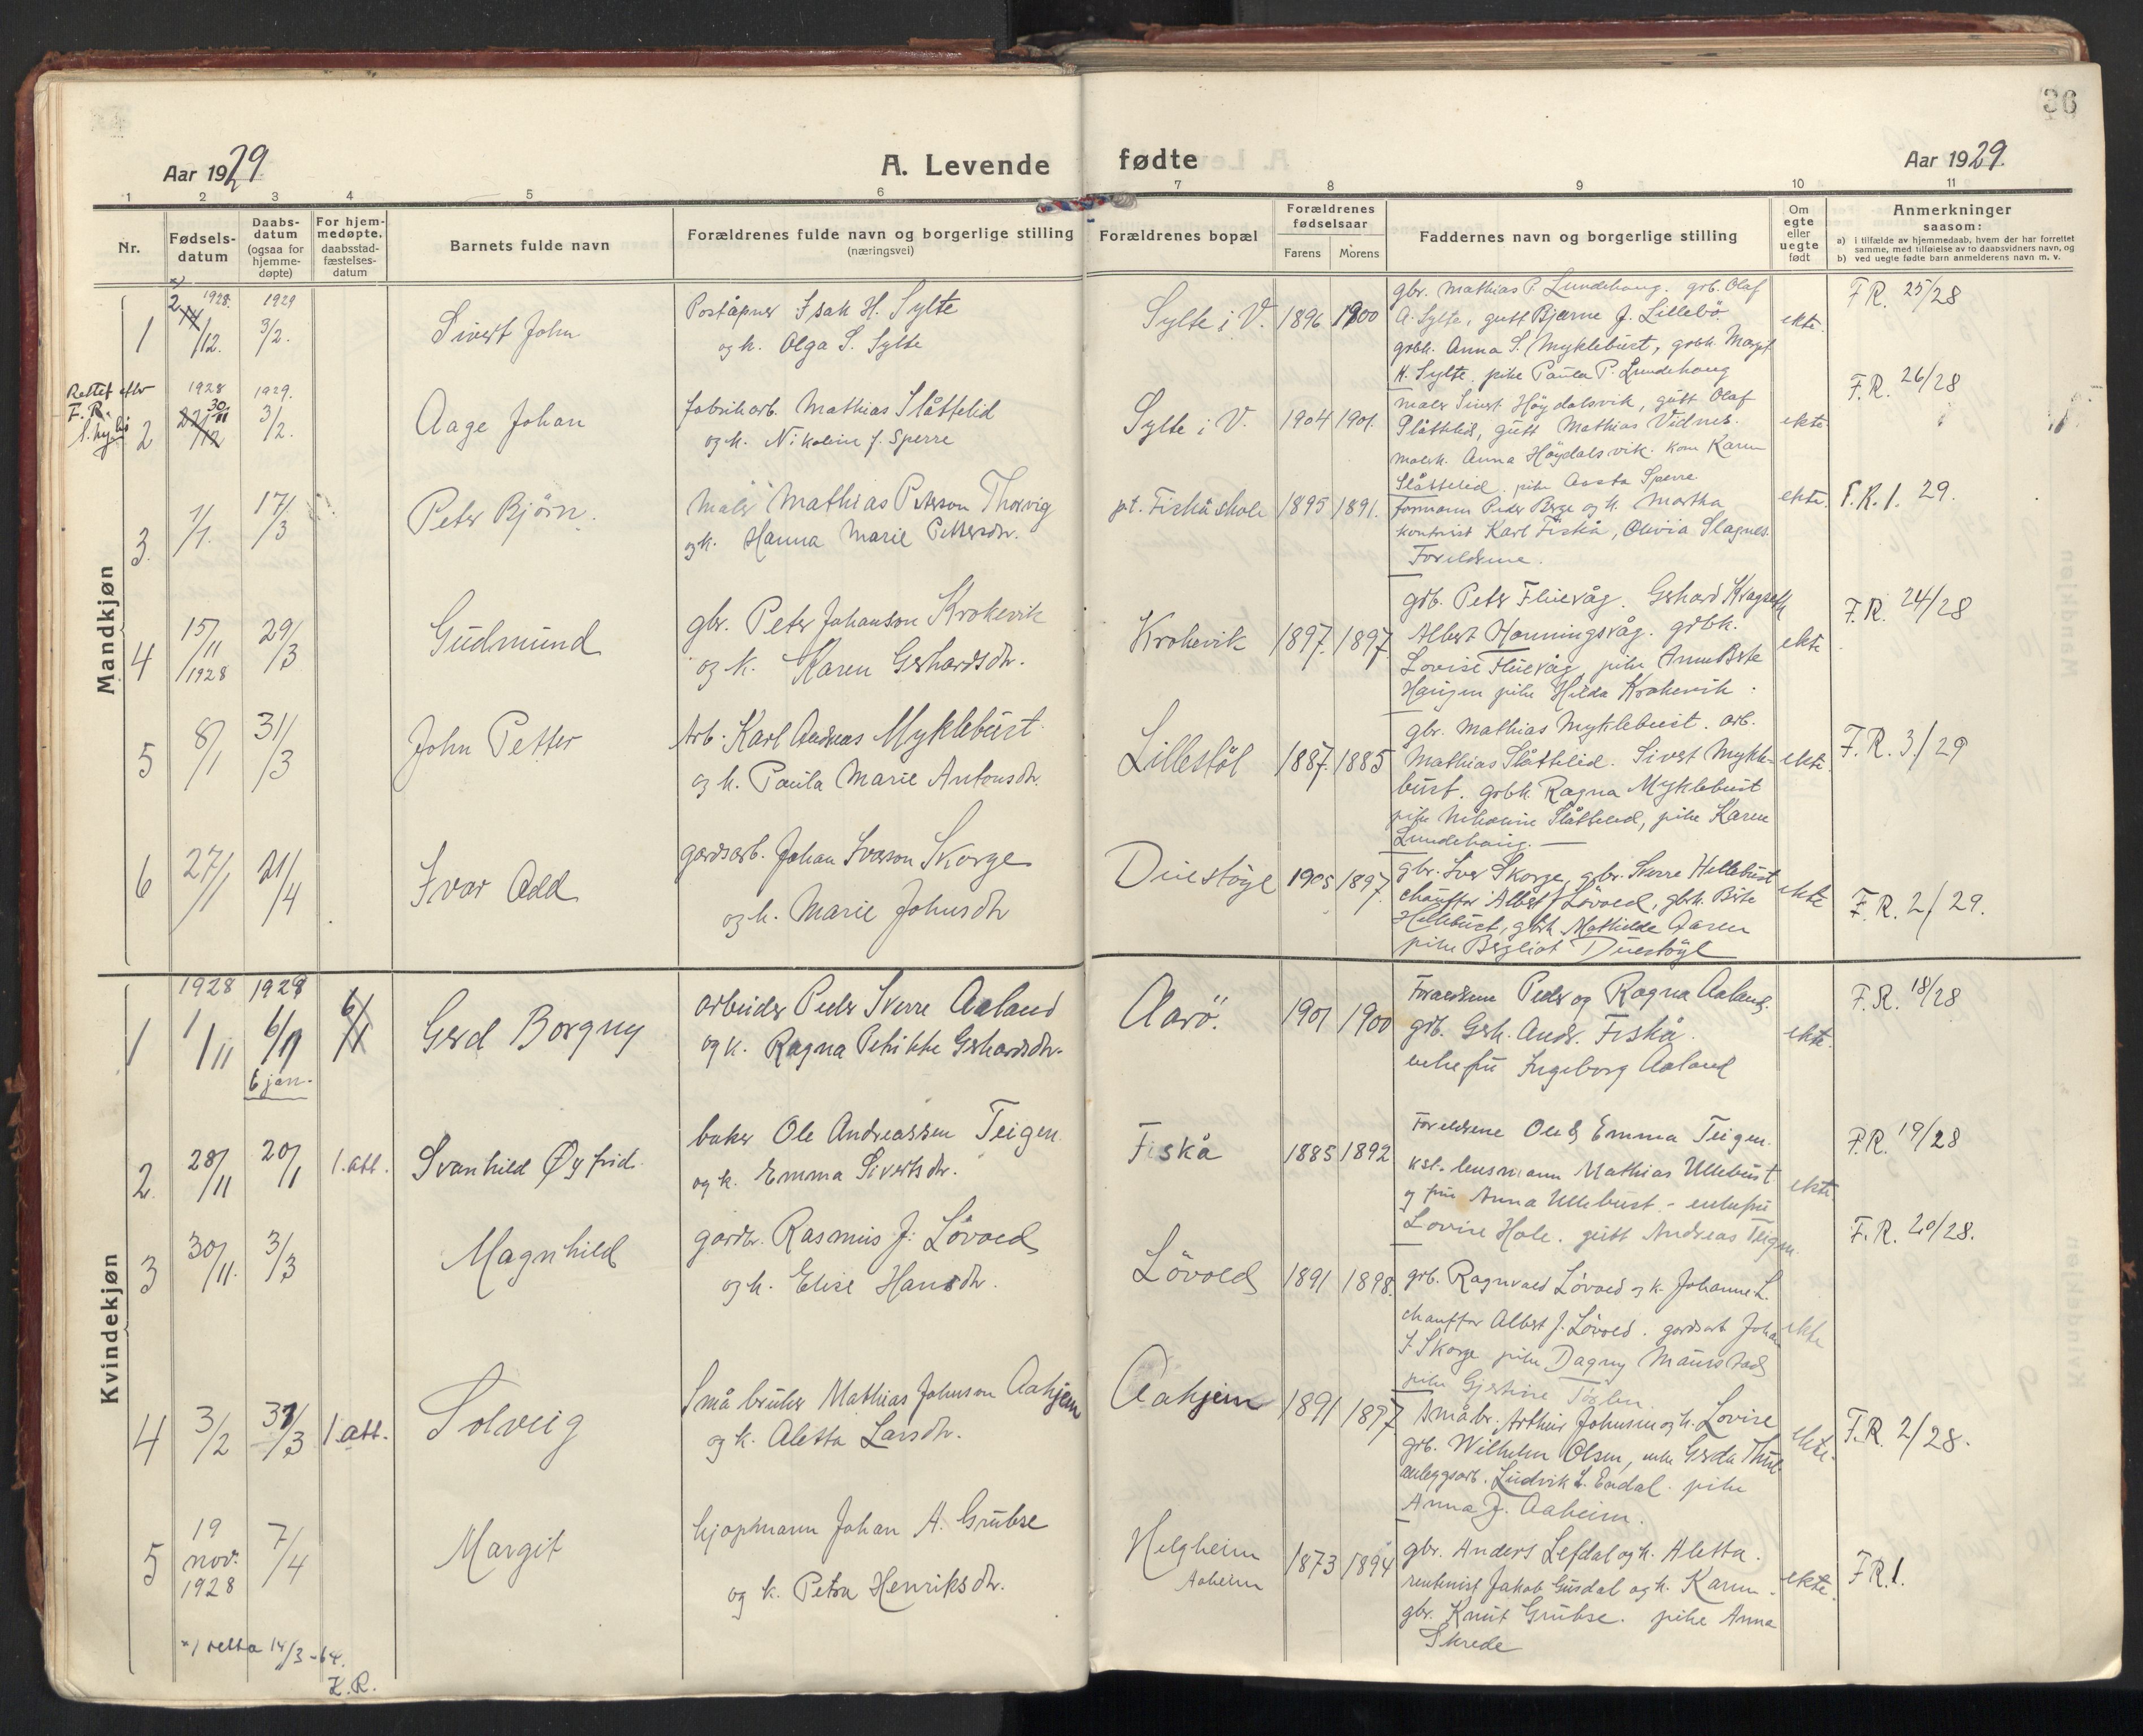 36
Aar 1929.
A. Levende fødte
Aar 1929.
1 2 3 4 5 6 7 8 9 10 11
Nr.
Fødsels-
datum
Daabs-
datum
(ogsaa for
hjemme-
døpte)
For hjem-
medøpte,
daabsstad-
fæstelses-
datum
Barnets fulde navn
Forældrenes fulde navn og borgerlige stilling
(næringsvei)
Forældrenes bopæl
Forældrenes
fødselsaar
Farens Morens
Faddernes navn og borgerlige stilling
Om
egte
eller
uegte
født
Anmerkninger
saasom:
a) i tilfælde av hjemmedaab, hvem der har forrettet
samme, med tilføielse av to daabsvidners navn, og
b) ved uegte fødte barn anmelderens navn m. v.
Mandkjøn
1
x)
2 1928 1929
14/12. 3/2.
Sivert John
Poståpner Isak H. Sylte
og k. Olga S. Sylte
Sylte i V. 1896 1900
gbr. Mathias P. Lundehaug. grb. Olaf
A. Sylte, gutt Bjarne J. Lillebö.
grbk. Anna S. Myklebust, grbk. Margit
H. Sylte, pike Paula P. Lundehaug
ekte.
F.R. 25/28
Rettet efter
F.R.
2
1928 1929.
30/11
22/12 3/2.
Aage Johan
fabrikarb. Mathias Slåttelid
og k. Nikoline J. Sperre
Sylte i V. 1904 1901.
maler Sivert Höydalsvik, gutt Olaf
Slåttelid, gutt Mathias Vidnes.
malerk. Anna Höydalsvik. kone Karen
Slåttelid. pike Aasta Sperre
ekte
F.R. 26/28
3.
1/1. 17/3
Peter Bjørn.
Maler Mathias Peterson Thorvig
og k. Hanna Marie Pettersdtr.
pt. Fiskå skole 1895 1891.
formann Peder Berge og k. Martha
kontorist Karl Fiskå, Olivia Slagnes.
Foreldrene.
ekte.
F.R. 1. 29.
4
15/11 1928 29/3
Gudmund
gbr. Peter Johanson Krokevik
og k. Karen Gerhardsdtr.
Krokevik 1897. 1897
grb. Peter Fluevåg. Gerhard Kragseth
Albert Honningsvåg. grbk.
Lovise Fluevåg, pike Anne Berte
Haugen pike Hilda Krokevik.
ekte
F.R. 24/28
5
8/1 31/3
John Petter
Arb. Karl Andreas Myklebust.
og k. Paula Marie Antonsdtr.
Lillestöl 1887. 1885
gbr. Mathias Myklebust. arb.
Mathias Slåttelid. Sivert Mykle-
bust. grbk. Ragna Myklebust
pike Nikoline Slåttelid, pike Karen
Lundehaug. —
ekte.
F.R. 3/29
6
27/1 21/4
Ivar Odd
gardsarb. Johan Iverson Skorge
og k. Marie Johnsdtr
Duestöyl 1905 1897.
gbr. Iver Skorge, gbr. Sverre Hellebust
chauffør Albert J Lövold, gbrk. Berte
Hellebust, gbrk Mathilde Aasen
pike Bergliot Duestöyl
ekte
F.R. 2/29.
Kvindekjøn
1
1928 1929
1/11 6/1
6 jan.
6/1
Gerd Borgny
Arbeider Peder Sverre Aaland
og k. Ragna Petrikke Gerhardsdtr.
Aarö. 1901 1900
Foreldrene Peder og Ragna Aaland.
grb. Gerh. Andr. Fiskå.
enkefru Ingeborg Aaland
ekte.
F.R. 18/28
2.
28/11 20/1 1. att.
Svanhild Øyfrid.
baker Ole Andreassen Teigen.
og k. Emma Sivertsdtr.
Fiskå 1885 1892
Foreldrene Ole & Emma Teigen.
kst. lensmann Mathias Ullebust
og fru Anna Ullebust. - enkefru
Lovise Hole. gutt Andreas Teigen.
ekte.
F.R. 19/28
3
30/11. 3/3
Magnhild
gardbr. Rasmus J. Lövold
og k. Elise Hansdtr.
Lövold 1891 1898.
grb. Ragnvald Lövold og k. Johanne L.
chauffør Albert J. Lövold. gardsarb Johan
I Skorge pike Dagny Maurstad
pike Gjertine
ekte
F.R. 20/28.
4
3/2 31/3 1. att.
Solveig
Småbruker Mathias Johnson Aahjem
og k. Aletta Larsdtr.
Aahjem 1891 1897
Småbr. Arthur Johnsen og k. Lovise
grb. Wilhelm Olsen, enke Gerda Thue
anleggsarb. Ludvik L. Endal. pike
Anna J. Aaheim.
ekte.
F.R. 2/28.
5
19
nov.
1928 7/4
Margit
kjøpmann Johan A. Grubse
og k. Petra Henriksdtr.
Helgheim
Aaheim 1873 1894
gbr. Anders Lefdal og k. Aletta.
rentenist Jakob Gusdal og k. Karen.
gbr. Knut Grubse. pike Anna
Skrede
ekte.
F.R. 1.
x) retta 14/3-64.
K.R.